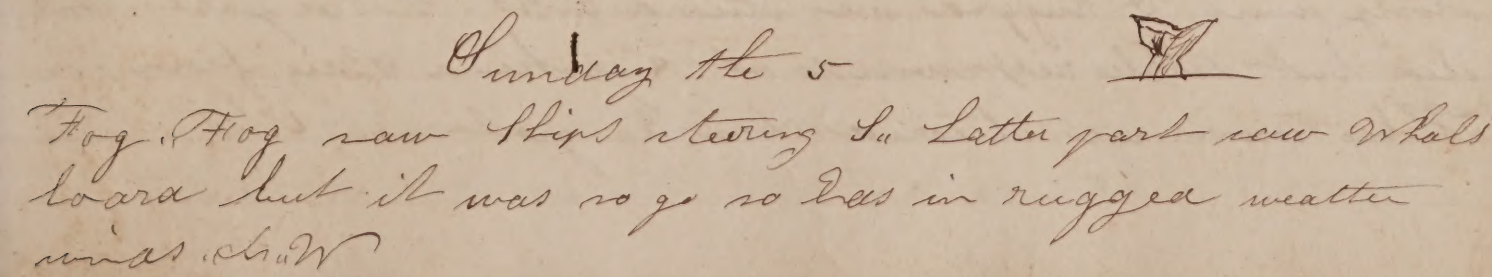 Sunday the 5
Fog. Fog saw Ships steering S" Latter part saw Whals
loard but it was no go so Ends in rugged weatter
winds. S"W